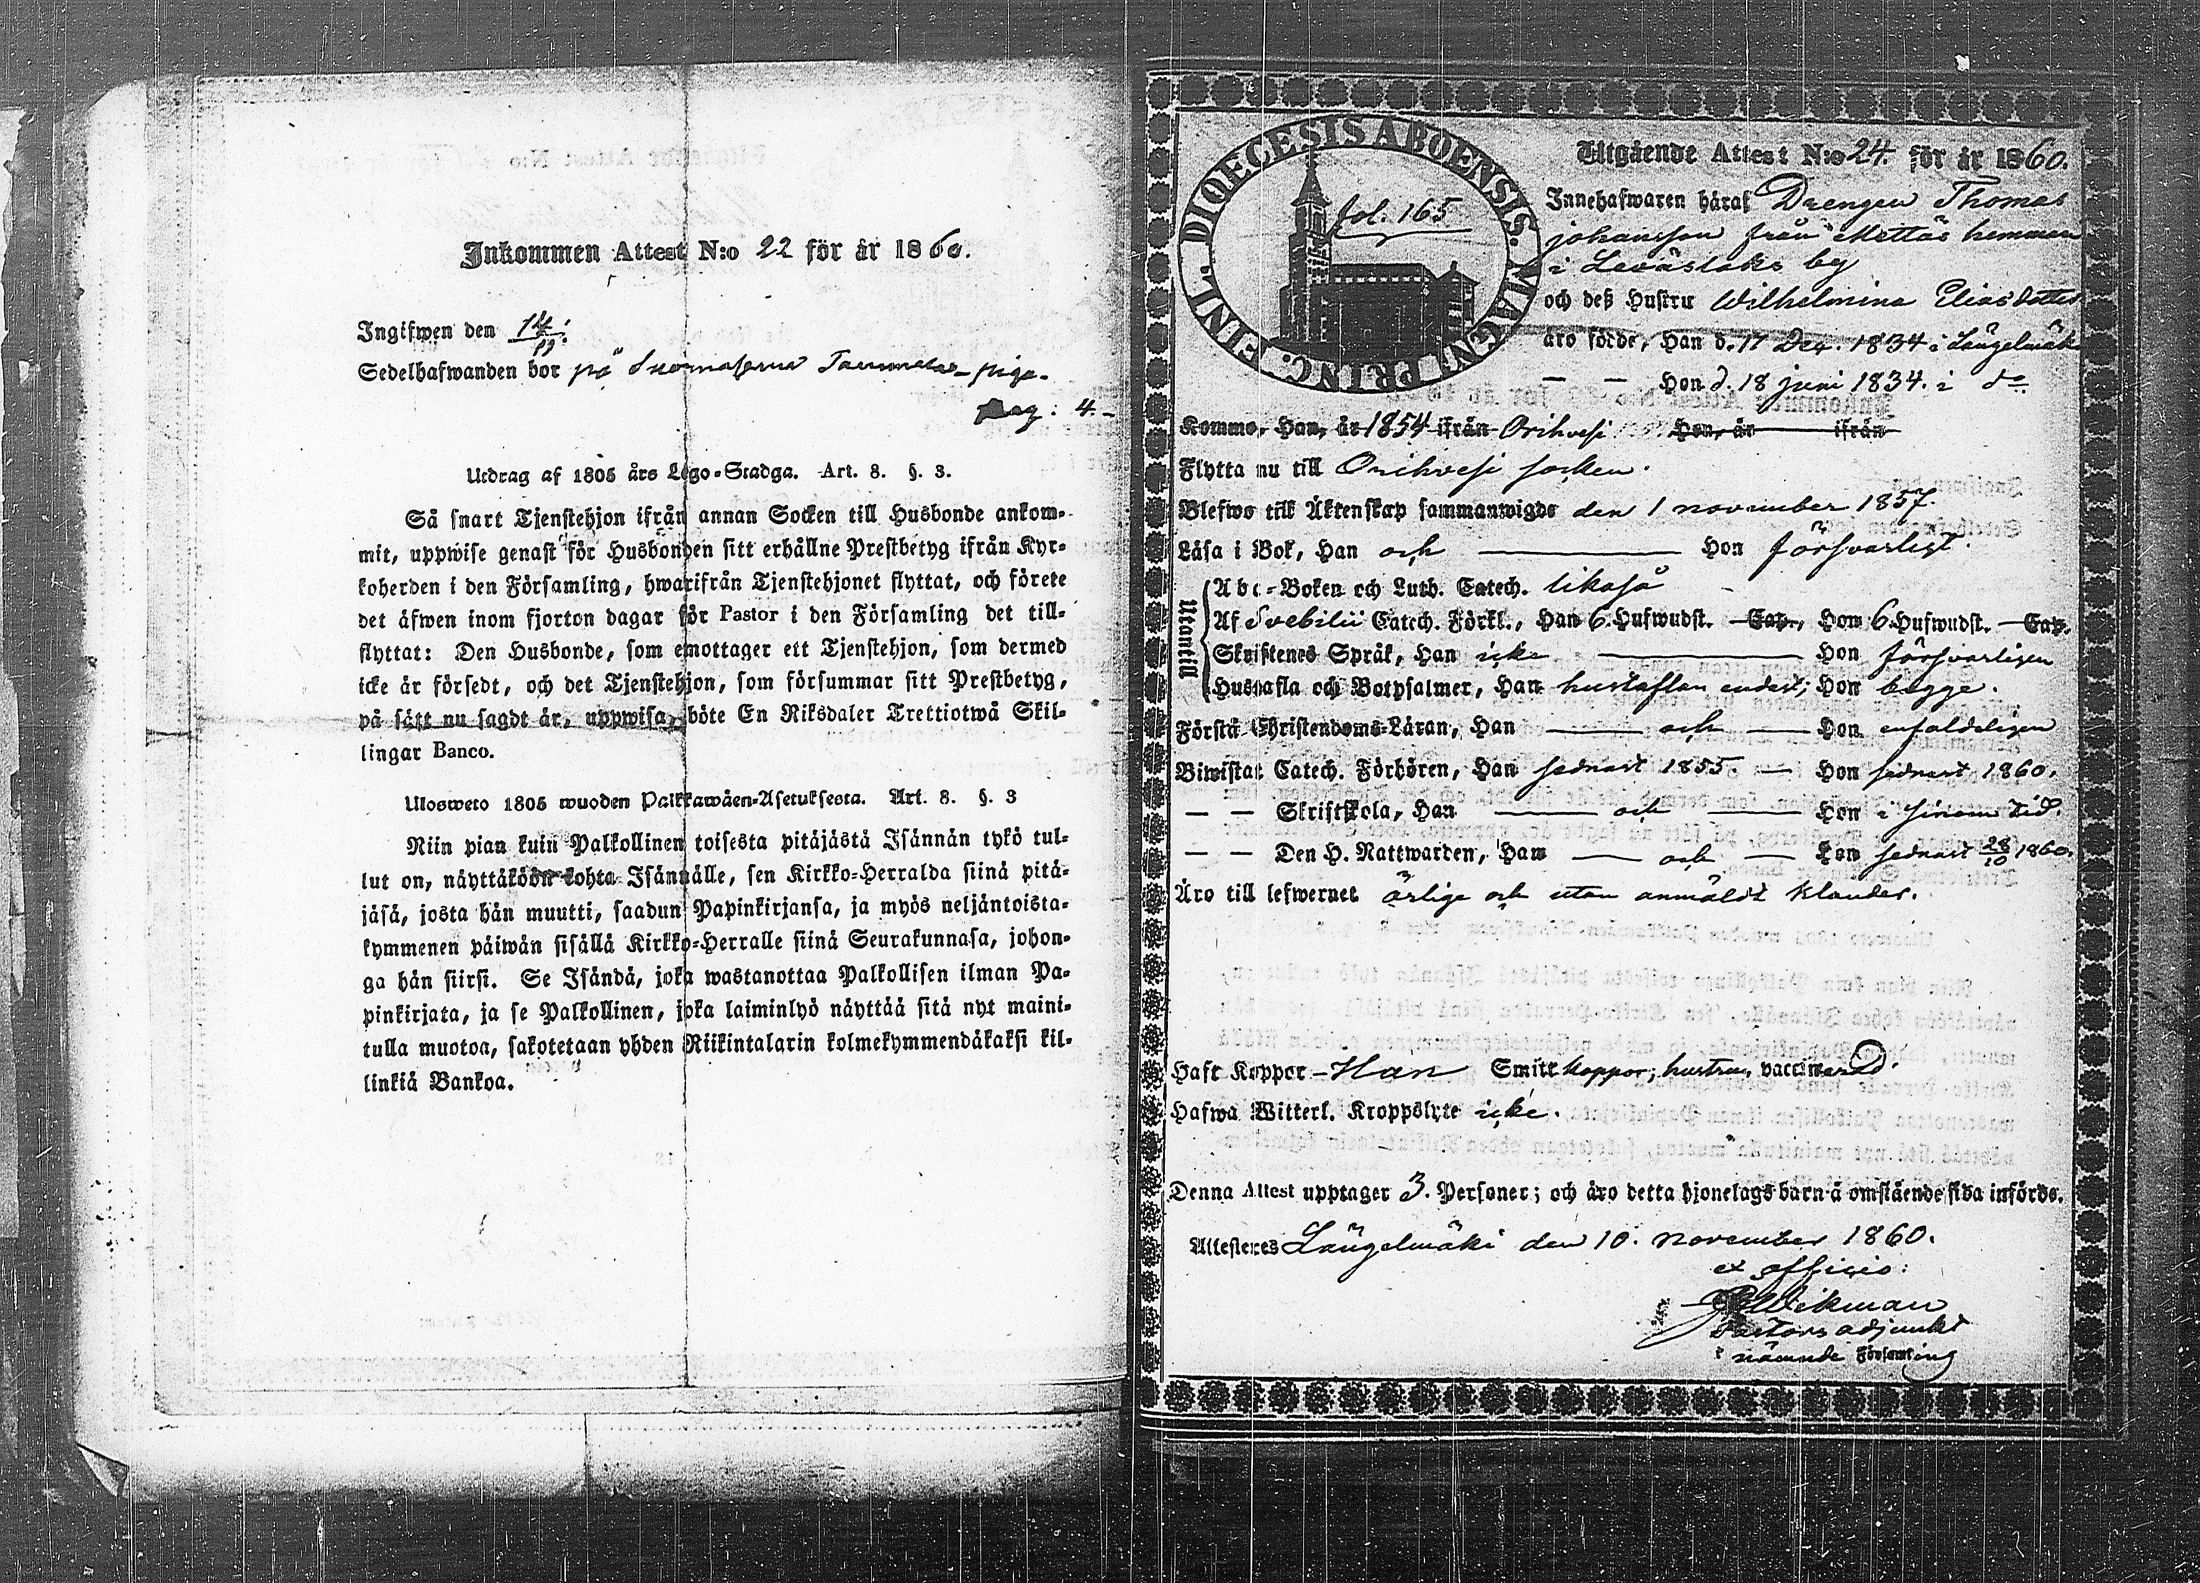 Inkommen Attest N:o 22 för år 1860.
Ingifwen den 14/11.
Sedelhafwanden bor på piga.
pag: 4.
Utdrag af 1805 års Lego-Stadga. Art. 8. §. 3.
Så snart Tjenstehjon ifrån annan Socken till Husbonde ankom-
mit, uppwise genast för Husbonden sitt erhållne Prestbetyg ifrån Kyr-
koherden i den Församling, hwarifrån Tjenstehjonet flyttat, och förete
det äfwen inom fjorton dagar för Pastor i den Församling det till-
flyttat: Den Husbonde, som emottager ett Tjenstehjon, som dermed
icke är försedt, och det Tjenstehjon, som försummar sitt Prestbetyg,
på sätt nu sagdt är, uppwisa, böte En Riksdaler Trettiotwå Skil-
lingar Banco.
Ulosweto 1805 wuoden Palkkawäen-Asetuksesta. Art. 8. §. 3
Niin pian kuin Palkollinen toisesta pitäjästä Isännän tykö tul-
lut on, näyttäköön kohta Isännälle, sen Kirkko-Herralda siinä pitä-
jäsä, josta hän muutti, saadun Papinkirjansa, ja myös neljäntoista-
kymmenen päiwän sisällä Kirkko-Herralle siinä Seurakunnasa, johon-
ga hän siirsi. Se Isändä, joka wastanottaa Palkollisen ilman Pa-
pinkirjata, ja se Palkollinen, joka laiminlyö näyttää sitä nyt maini-
tulla muotoa, sakotetaan yhden Riikintalarin kolmekymmendäkaksi kil-
linkiä Bankoa.
DIOECESIS ABOENSIS. MAGNI PRINC. FINL.
fol. 165
Utgående Attest N:o 24. för år 1860.
Innehafwaren häraf Drengen Thomas
Johansson från Mattas hemman
i Leväslaks by
och deß Hustru Wilhelmina Eliasdotter
äro födde, Han d. 17 Dec. 1834 i Längelmäk
— — Hon d. 18 juni 1834. i do
Kommo, Han, år 1854 ifrån Orihvesi Hon, år ifrån
Flytta nu till Orihvesi socken.
Blefwo till Äktenskap sammanwigde den 1 november 1857.
Läsa i Bok, Han och — Hon försvarligt.
Utantill
Abc-Boken och Luth. Catech. likaså
Af Svebilii Catech. Förkl., Han 6 Hufwudst. — Cap., Hon 6 Hufwudst. — Cap.
Skriftenes Språk, Han icke — Hon försvarligen
Hustafla och Botpsalmer, Han hustaflan endast; Hon begge.
Förstå Christendoms-Läran, Han — och — Hon enfaldeligen
Biwistat Catech. Förhören, Han sednast 1855. — Hon sednast 1860.
— — Skriftskola, Han — och — Hon i sinom tid.
— — Den H. Nattwarden, Han — och — Hon sednast 28/10 1860.
Äro till lefwernet ärlige och utan anmäldt klander.
Haft Koppor — Han Smittkoppor; hustrun vaccinerad.
Hafwa Witterl. Kroppslyte icke.
Denna Attest upptager 3. Personer; och äro detta hjonelags barn å omstående sida införde.
Attesteres Längelmäki den 10. november 1860.
ex officio:
Wikman
Pastors adjunkt
i nämnde Församling